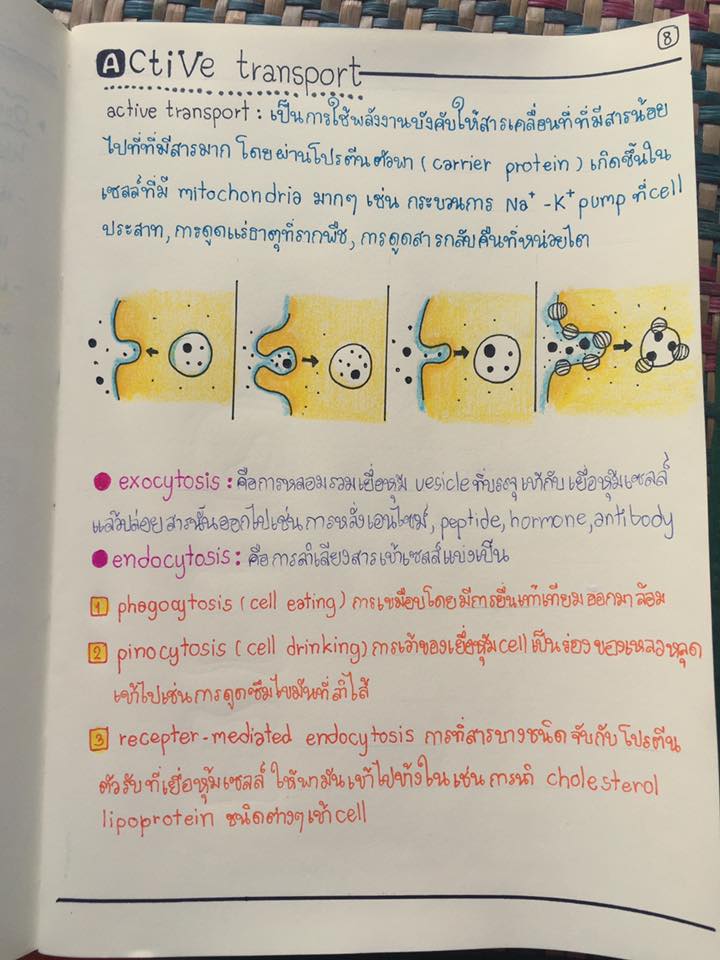 8
Active transport
active transport : เป็นการใช้พลังงานบังคับให้สารเคลื่อนที่ที่มีสารน้อย
ไปที่ที่มีสารมาก โดยผ่านโปรตีนตัวพา ( carrier protein ) เกิดขึ้นใน
เซลล์ที่มี mitochondria มากๆ เช่น กระบวนการ Na⁺ -K⁺ pump ที่ cell
ประสาท, การดูดแร่ธาตุที่รากพืช, การดูดสารกลับคืนที่หน่วยไต
exocytosis : คือการหลอมรวมเยื่อหุ้ม vesicle ที่บรรจุเข้ากับ เยื่อหุ้มเซลล์
แล้วปล่อยสารนั้นออกไปเช่น การหลั่งเอนไซม์, peptide, hormone, antibody
endocytosis : คือการลำเลียงสารเข้าเซลล์แบ่งเป็น
1 phagocytosis ( cell eating ) การเขมือบโดยมีการยื่นเท้าเทียมออกมาล้อม
2 pinocytosis ( cell drinking ) การเว้าของเยื่อหุ้ม cell เป็นร่อง ของเหลวหลุด
เข้าไปเช่น การดูดซึมไขมันที่ลำไส้
3 recepter-mediated endocytosis การที่สารบางชนิดจับกับโปรตีน
ตัวรับที่เยื่อหุ้มเซลล์ ให้พามันเข้าไปข้างใน เช่น การนำ cholesterol
lipoprotein ชนิดต่างๆเข้า cell